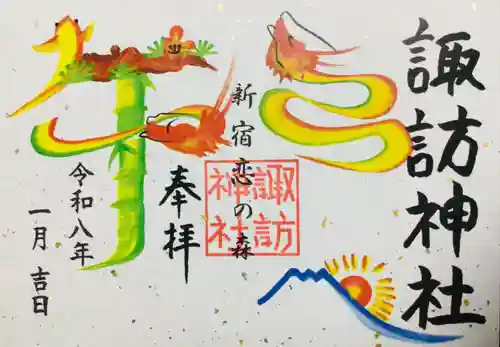 諏訪神社
新宿恋の森
諏訪
神社
奉拝
午
令和八年
一月吉日